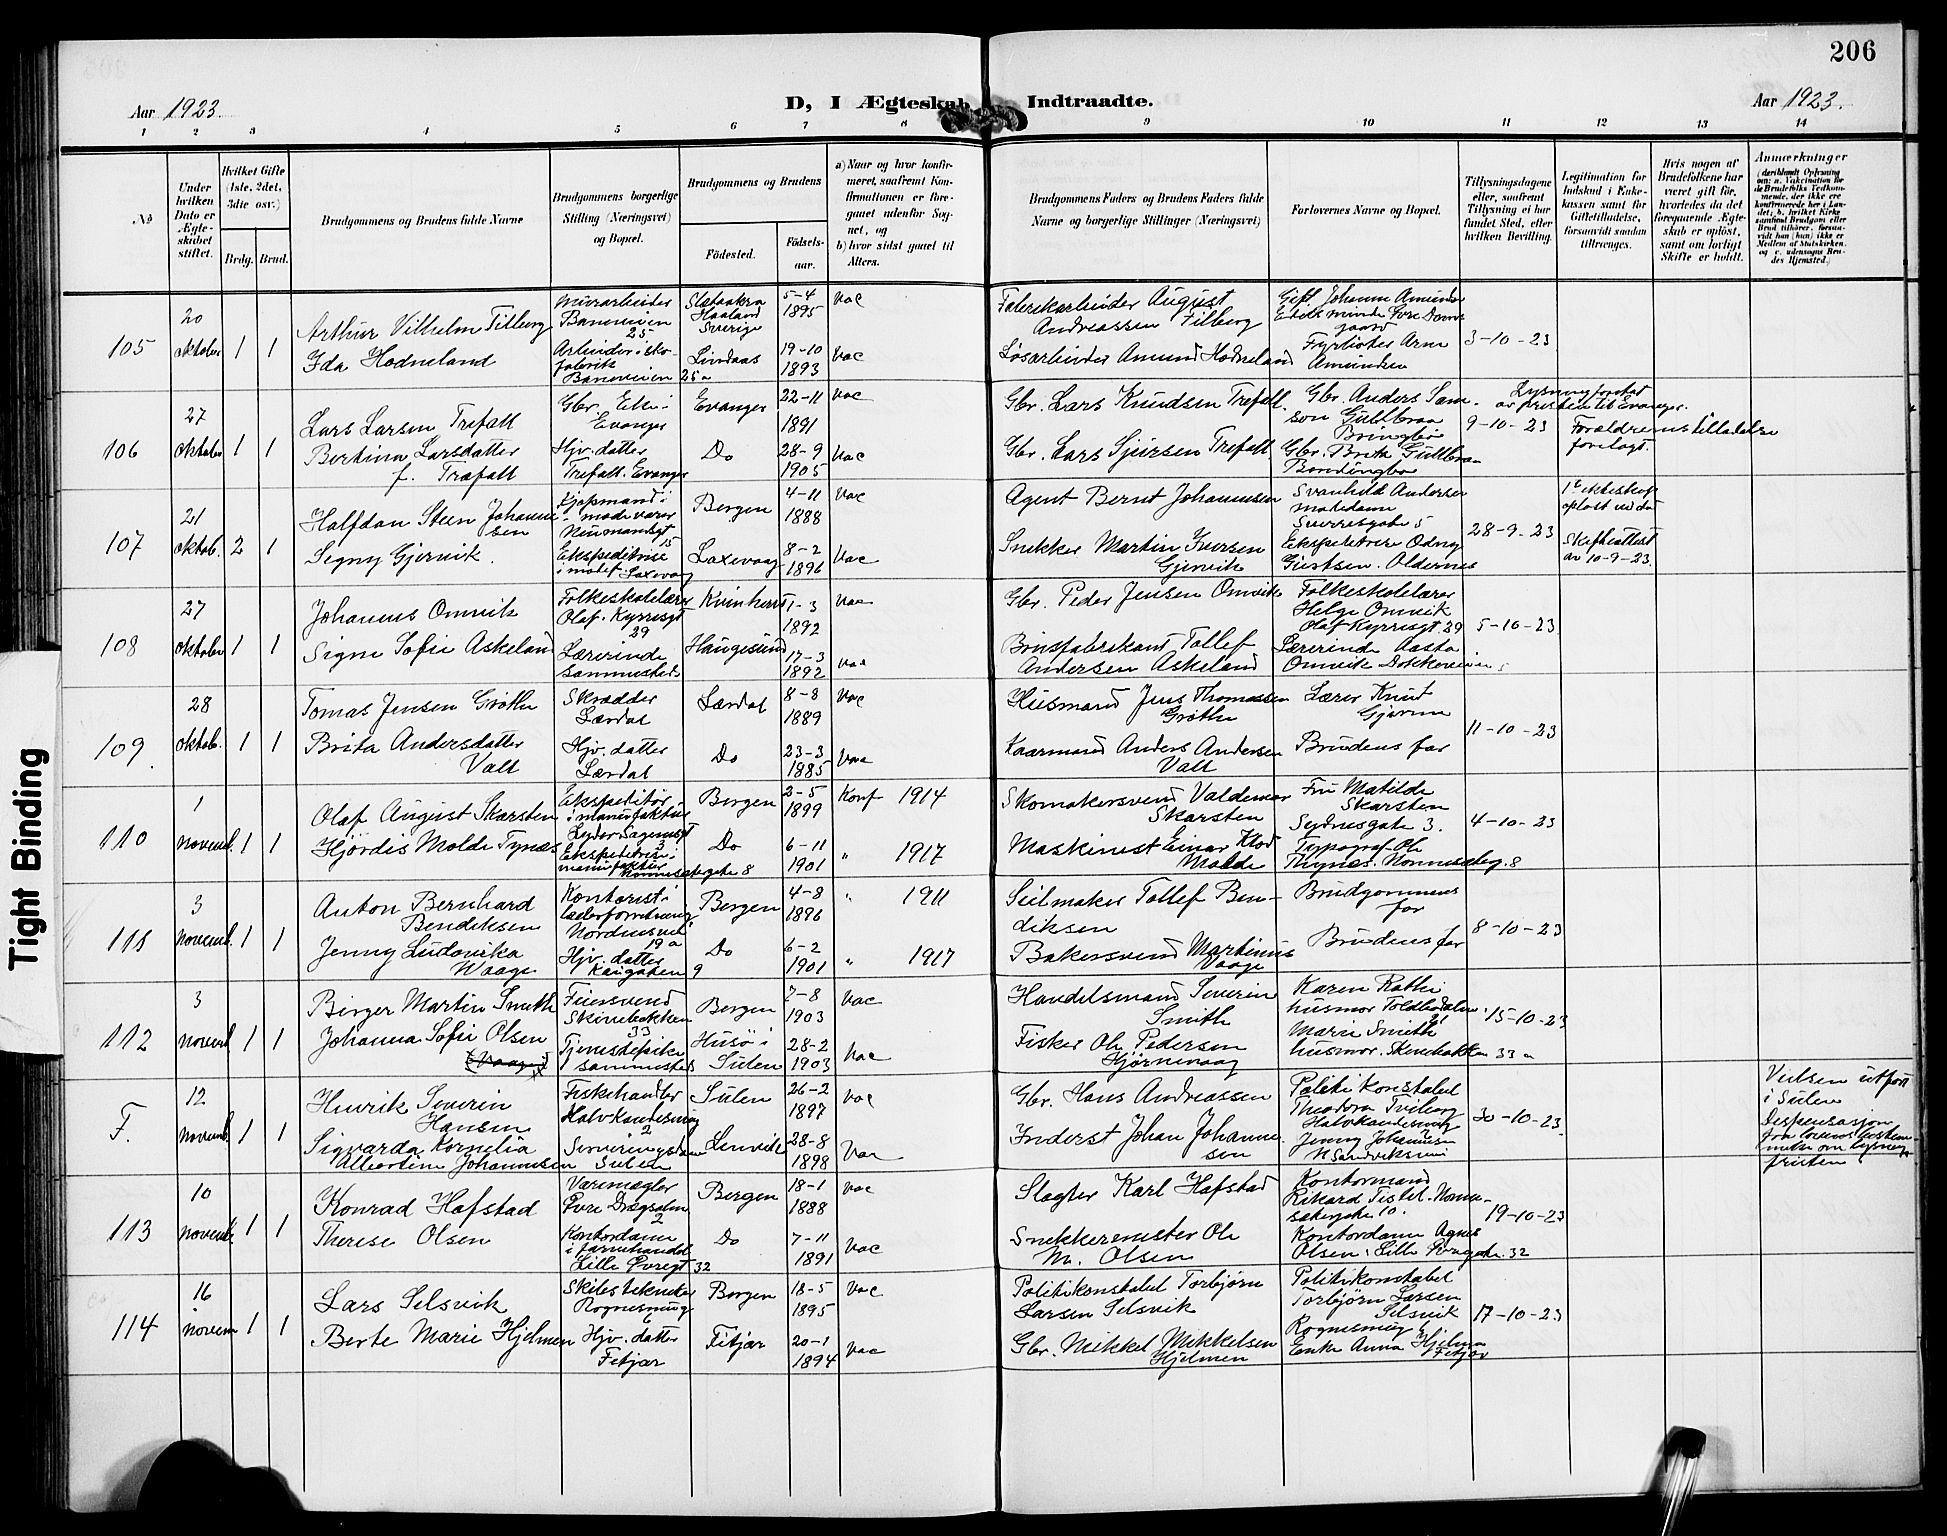 206
Aar 1923.
D, I Ægteskab Indtraadte.
Aar 1923.
1 2 3 4 5 6 7 8 9 10 11 12 13 14
No
Under hvilken Dato er Ægteskabet stiftet.
Hvilket Gifte (1ste, 2det, 3die osv.)
Brdg. Brud.
Brudgommens og Brudens fulde Navne
Brudgommens borgerlige Stilling (Næringsvei) og Bopæl.
Brudgommens og Brudens
Fødested.
Fødselsaar.
a) Naar og hvor konfirmeret, saafremt Konfirmationen er foregaaet udenfor Sognet, og
b) hvor sidst gaaet til Alters.
Brudgommens Faders og Brudens Faders fulde Navne og borgerlige Stillinger (Næringsvei)
Forlovernes Navne og Bopæl.
Tillysningsdagene eller, saafremt Tillysning ei har fundet Sted, efter hvilken Bevilling.
Legitimation for Indskud i Enkekassen samt for Giftetilladelse, forsaavidt saadan tiltrænges.
Hvis nogen af Brudefolkene har været gift før, hvorledes da det foregaaende Ægteskab er opløst, samt om lovligt Skifte er holdt.
Anmerkninger
105
20 oktober 1 1
Arthur Vilhelm Filberg
Murarbeider Baneveien 25
Haaland Sverige
5-4 1895
vac
Fabrikarbeider August Andreassen Filberg
Ida Hodneland
Arbeider i skofabrik Baneveien 25a
Lindaas
19-10 1893
vac
Løsarbeider Amund Hodneland
Fyrbøter Arne Amundsen
3-10-23
106
27 oktober 1 1
Lars Larsen Trefalt
Gbr. Evanger
Evanger
22-11 1891
vac
Gbr. Lars Knudsen Trefalt.
Gbr. Anders Samson Gullbraa
Bertina Larsdatter f. Trefalt
Hjv. datter Trefalt. Evanger
Do
28-9 1905
vac
Gbr. Lars Sjursen Trefalt
Gbr. Brita Gullbraa
9-10-23
av presten til Evanger.
Forældrenes tilladelse forelagt.
107
21 oktob. 2 1
Halfdan Steen Johannesen
Kjøpmand i modevarer 15
Bergen
4-11 1888
vac
Agent Bernt Johannesen
Svanhild Andersen Sverresgate 5
Signy Gjervik.
Ekspeditrice Laxevaag
Laxevaag
8-2 1896
vac
Snekker Martin Iversen Gjervik
Ekspeditrice Odny
28-9-23
Skifteattest av 10-9-23.
108
27 oktober 1 1
Johannes Omvik
Folkeskolelærer Olaf Kyrresgt 29
Kvinherr.
1-3 1892
vac
Gbr. Peder Jensen Omvik
Folkeskolelærer Helge Omvik Olaf Kyrresgt. 29
5-10-23
Signe Sofie Askeland
Lærerinde sammesteds
Haugesund
17-3 1892
vac
Brusfabrikant Tollef Andersen Askeland
Lærerinde Aasta Omvik Dokkeveien
109
28 oktob. 1 1
Tomas Jensen Grøthe
Skrædder Lærdal
Lærdal
8-8 1889
vac
Husmand Jens Thomassen Grøthe
Lærer Knut
11-10-23
Brita Andersdatter Valt
Hjv. datter Lærdal
Do
23-3 1885
vac
Kaarmand Anders Andersen Valt
Brudens far
110
1 novemb. 1 1
Olaf August Skarsten
Ekspeditør i manufaktur Lyder Sagensgt 3
Bergen
2-5 1899
Konf 1914
Skomakersvend Valdemar Skarsten
Fru Matilde Skarsten Sydnesgate 3.
4-10-23
Hjørdis Molde Tynæs
Ekspeditrice i manufaktur Nonnesætergate 8
Do
6-11 1901
" 1917
Maskinist Einar Klod Molde
Typograf Ole Thynæs. 8
111
3 novemb. 1 1
Anton Bernhard Bendiksen
Kontorist i læderforretning Nordnesvei 19a
Bergen
4-8 1896
" 1911
Seilmaker Tollef Bendiksen
Brudgommens far
8-10-23
Jenny Ludovika Waage
Hjv. datter Kaigaten 9
Do
6-2 1901
" 1917
Bakersvend Martinus Waage
Brudens far
112
3 novemb 1 1
Birger Martin Smith
Feiersvend Skivebakken 33
Bergen
2-8 1903
vac
Handelsmand Severin Smith
Karen Rathe husmor
15-10-23
Johanna Sofie Olsen
Tjenestepike sammesteds
Husø i Sulen
28-2 1903
vac
Fisker Ole Pedersen Hjørnevaag
Marie Smith husmor. Skivebakken 33a
F.
12 novemb. 1 1
Henrik Severin Hansen
Fiskehandler Halvkandesmug 2
Sulen
26-2 1897
vac
Gbr. Hans Andreassen
Politikonstabel Theodor Tviberg Halvkandesmug 2
30-10-23
Sigvarda Kornelia Albertine Johannesen
Serveringsdame Sulen
Lenvik
28-8 1898
vac
Inderst Johan Johannesen
Jenny Johannesen N Sandviksvei
Vielsen utført i Sulen
Dispensasjon
113
10 novemb. 1 1
Konrad Hofstad
Varemægler Øvre Dregsalm. 2
Bergen
18-1 1888
vac
Slagter Karl Hofstad
Kontormand Rikard Tislet. Nonnesætergate 10.
19-10-23
Therese Olsen
Kontordame i farvehandel Lille Øvregt 32
Do
7-11 1891
vac
Snekkermester Ole M. Olsen
Kontordame Agnes Olsen. Lille Øvregate. 32
114
16 novem 1 1
Lars Selsvik
Skibstekniker Rognesmug 6
Bergen
18-5 1895
vac
Politikonstabel Torbjørn Larsen Selsvik
Politikonstabel Torbjørn Larsen Selsvik Rognesmug 6
17-10-23
Berte Marie Hjelmen
Hjv. datter Fitjar
Fitjar
20-1 1894
vac
Gbr. Mikkel Mikkelsen Hjelmen
Enke Anna Hjelmen Fitjar
Tight Binding